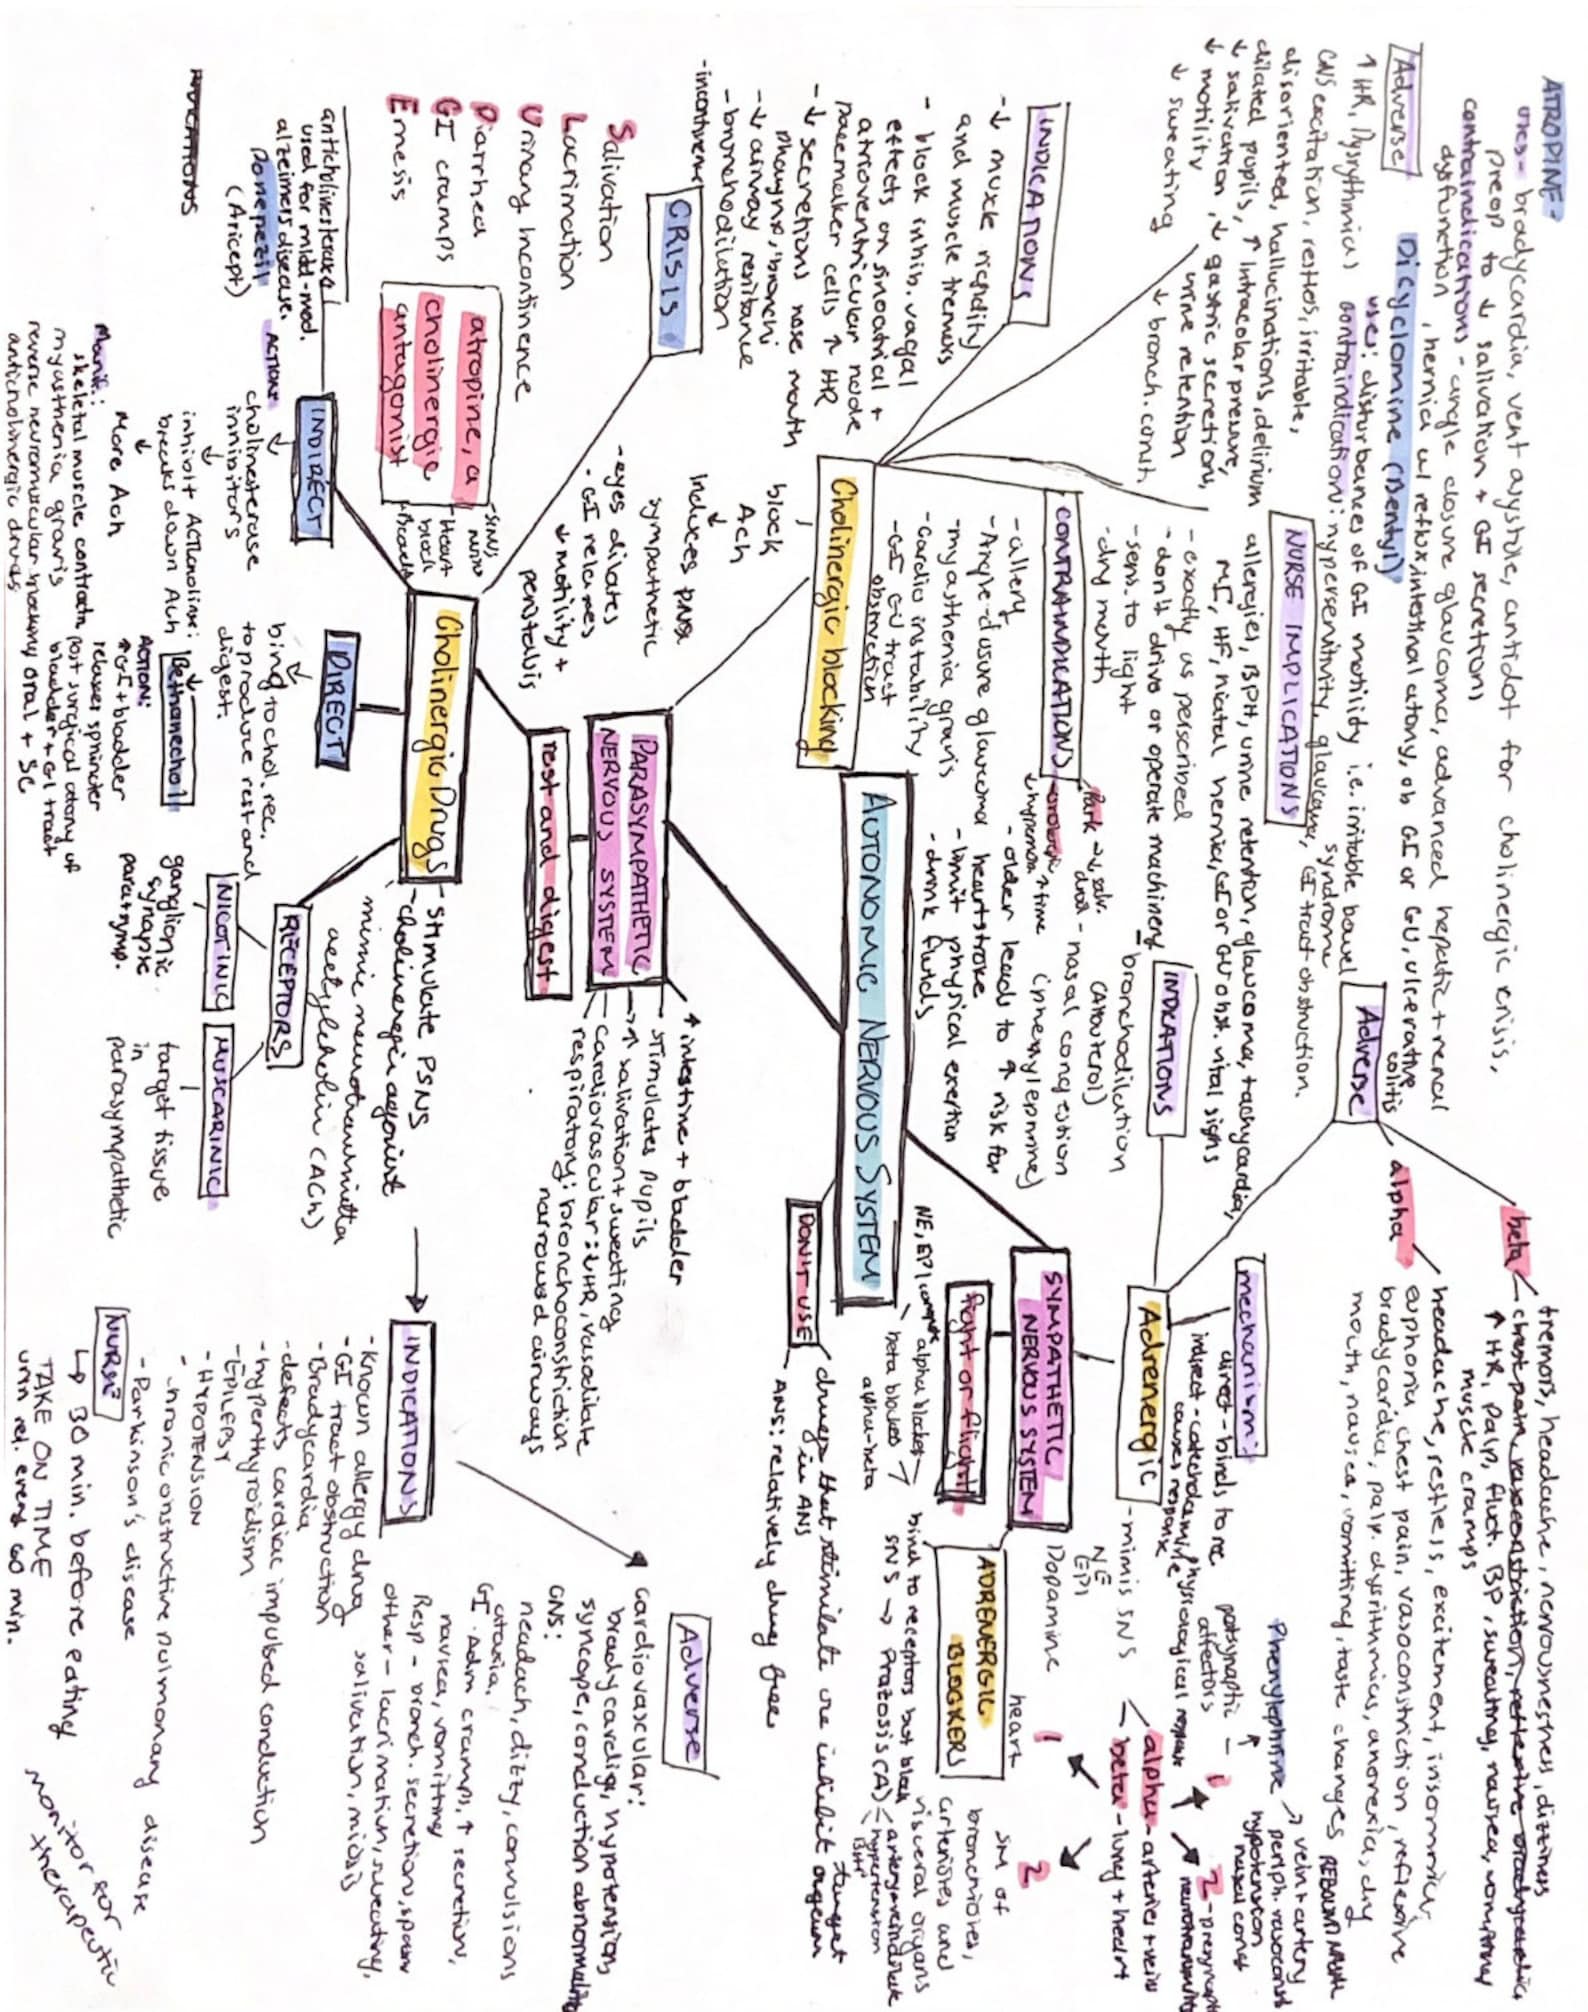 ATROPINE-
uses- bradycardia, vent asystole, antidot for cholinergic crisis,
preop to ↓ salivation + GI secretions
contraindications - angle closure glaucoma, advanced hepatic + renal
dysfunction, hernia w/ reflux, intestinal atony, ob GI or GU, ulcerative
colitis
Dicyclomine (Bentyl)
uses: disturbances of GI motility i.e. irritable bowel
syndrome
contraindication: hypersensitivity, glaucoma, GI tract obstruction.
Adverse
↑ HR, Dysrythmias
CNS excitation, restless, irritable,
disoriented, hallucinations, delirium
dilated pupils, ↑ intraocular pressure,
↓ salivation, ↓ gastric secretions,
↓ motility urine retention
↓ sweating ↓ bronch. const.
NURSE IMPLICATIONS
allergies, BPH, urine retention, glaucoma, tachycardia,
MI, HF, hiatal hernia, GI or GU obst. vital signs
- exactly as perscribed
- don't drive or operate machinery
- sens. to light
- dry mouth
- older leads to ↑ risk for
heartstroke
- limit physical exertion
- drink fluids
INDICATIONS
- ↓ muscle rigidity
and muscle tremors
- block inhib. vagal
effects on sinoatrial +
atrioventricular node
pacemaker cells ↑ HR
- ↓ secretions nose mouth
pharynx, bronchi
- ↓ airway resistance
- bronchodilation
- incontinence
CONTRAINDICATIONS
- allergy
- Angle-closure glaucoma
- myasthenia gravis
- cardio instability
- GI GU tract
obstruction
Park → ↓ saliv.
drool
Cholinergic blocking
block
Ach
↓
induces PNS
sympathetic
- eyes dilates
- GI relaxes
↓ motility +
peristalsis
CRISIS
Salivation
Lacrimation
Urinary Incontinence
Diarrhea
GI cramps
Emesis
atropine, a
cholinergic
antagonist
Heart
block
AUTONOMIC NERVOUS SYSTEM
PARASYMPATHETIC
NERVOUS SYSTEM
rest and digest
↑ intestine + bladder
stimulates pupils
↑ salivation + sweating
cardiovascular: ↓ HR, vasodilate
respiratory: bronchoconstriction
narrowed airways
Cholinergic Drugs
- stimulate PSNS
- cholinergic agonist
mimic neurotransmitter
acetylcholine (ACh)
INDIRECT
anticholinesterase
used for mild-mod.
alzeimers disease.
Donepezil
(Aricept)
ACTION:
cholinesterase
innibitors
↓
inhibit ACTcholine:
breaks down Ach
↓
More Ach
Manif.:
skeletal muscle contractn
myasthenia gravis
reverse neuromuscular blocking
anticholinergic drugs
DIRECT
bind to chol. rec.
to produce rest and
digest.
Bethanechol
ACTION:
↑ GI + bladder
relaxes sphincter
post surgical atony of
bladder + GI tract
oral + SC
RECEPTORS
NICOTINIC
ganglionic
synapse
parasymp.
MUSCARINIC
target tissue
in
parasympathetic
INDICATIONS
- Known allergy drug
- GI tract obstruction
- Bradycardia
- defects cardiac impulsed conduction
- hyperthyroidism
- EPILEPSY
- HYPOTENSION
- chronic onstructive pulmonary disease
- Parkinson's disease
NURSE
↳ 30 min. before eating
TAKE ON TIME
urin rel. every 60 min.
monitor for
therapeutic
Adverse
Cardiovascular:
bradycardia, hypotension,
syncope, conduction abnormality
CNS:
headach, dizzy, convulsions
ataxia.
GI - Adm cramps, ↑ secretion,
nausea, vomitting
Resp - bronch. secretion, spasm
other - lacrimation, sweating,
salivation, miosis
DON'T USE
drugs that stimilate ore inhibit target
organ in ANS
ANS: relatively drug free
SYMPATHETIC
NERVOUS SYSTEM
fight or flight
NE, EPI
alpha blocker
beta blocker
alpha-beta
ADRENERGIC
BLOCKERS
bind to receptors but block
SNS → Prazosis (A)
hypertension
BPH
Adrenergic
- mimis SNS
NE
EPI
Dopamine
INDICATIONS
- bronchodilation
(Albuterol)
- nasal congestion
(phenylephrine)
mechanism:
direct - binds to re
indirect - catecholamine
causes response
physiological response
Phenylephrine
→ vein + artery
periph. vasoconst
hypotension
nasal const
REBOUND NASAL
postsynaptic
affectors
1
2 - presynap
alpha - arteries + veins
beta - lung + heart
1
heart
2
SM of
bronchioles,
arterioles and
visceral organs
Adverse
alpha
headache, restless, excitement, insomnia,
euphoria, chest pain, vasoconstriction, reflexive
bradycardia, palp. dysrithmias, anorexia, dry
mouth, nausea, vomitting, taste changes
beta
tremors, headache, nervousnesthess, dizziness
↑ HR, pain, fluct. BP, sweating, nausea, vomiting
muscle cramps